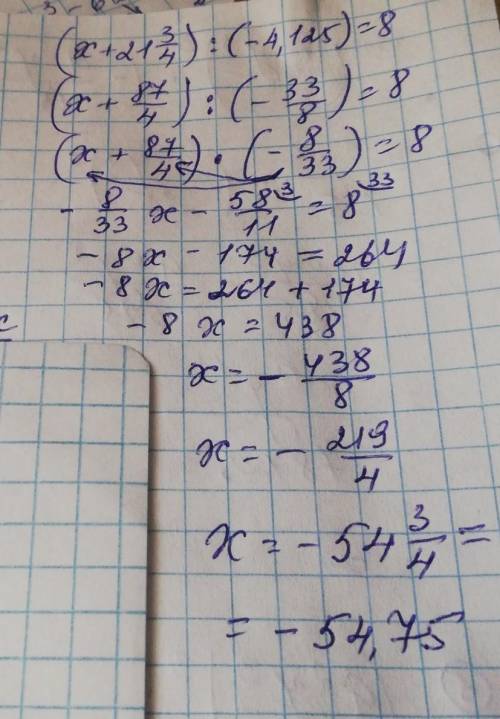 (x + 21 3/4) : (-4,125) = 8
(x + 87/4) : (- 33/8) = 8
(x + 87/4) · (- 8/33) = 8
- 8/33 x - 58/11 ³ = 8 ³³
- 8x - 174 = 264
- 8x = 264 + 174
- 8x = 438
x = - 438/8
x = - 219/4
x = - 54 3/4 =
= - 54,75